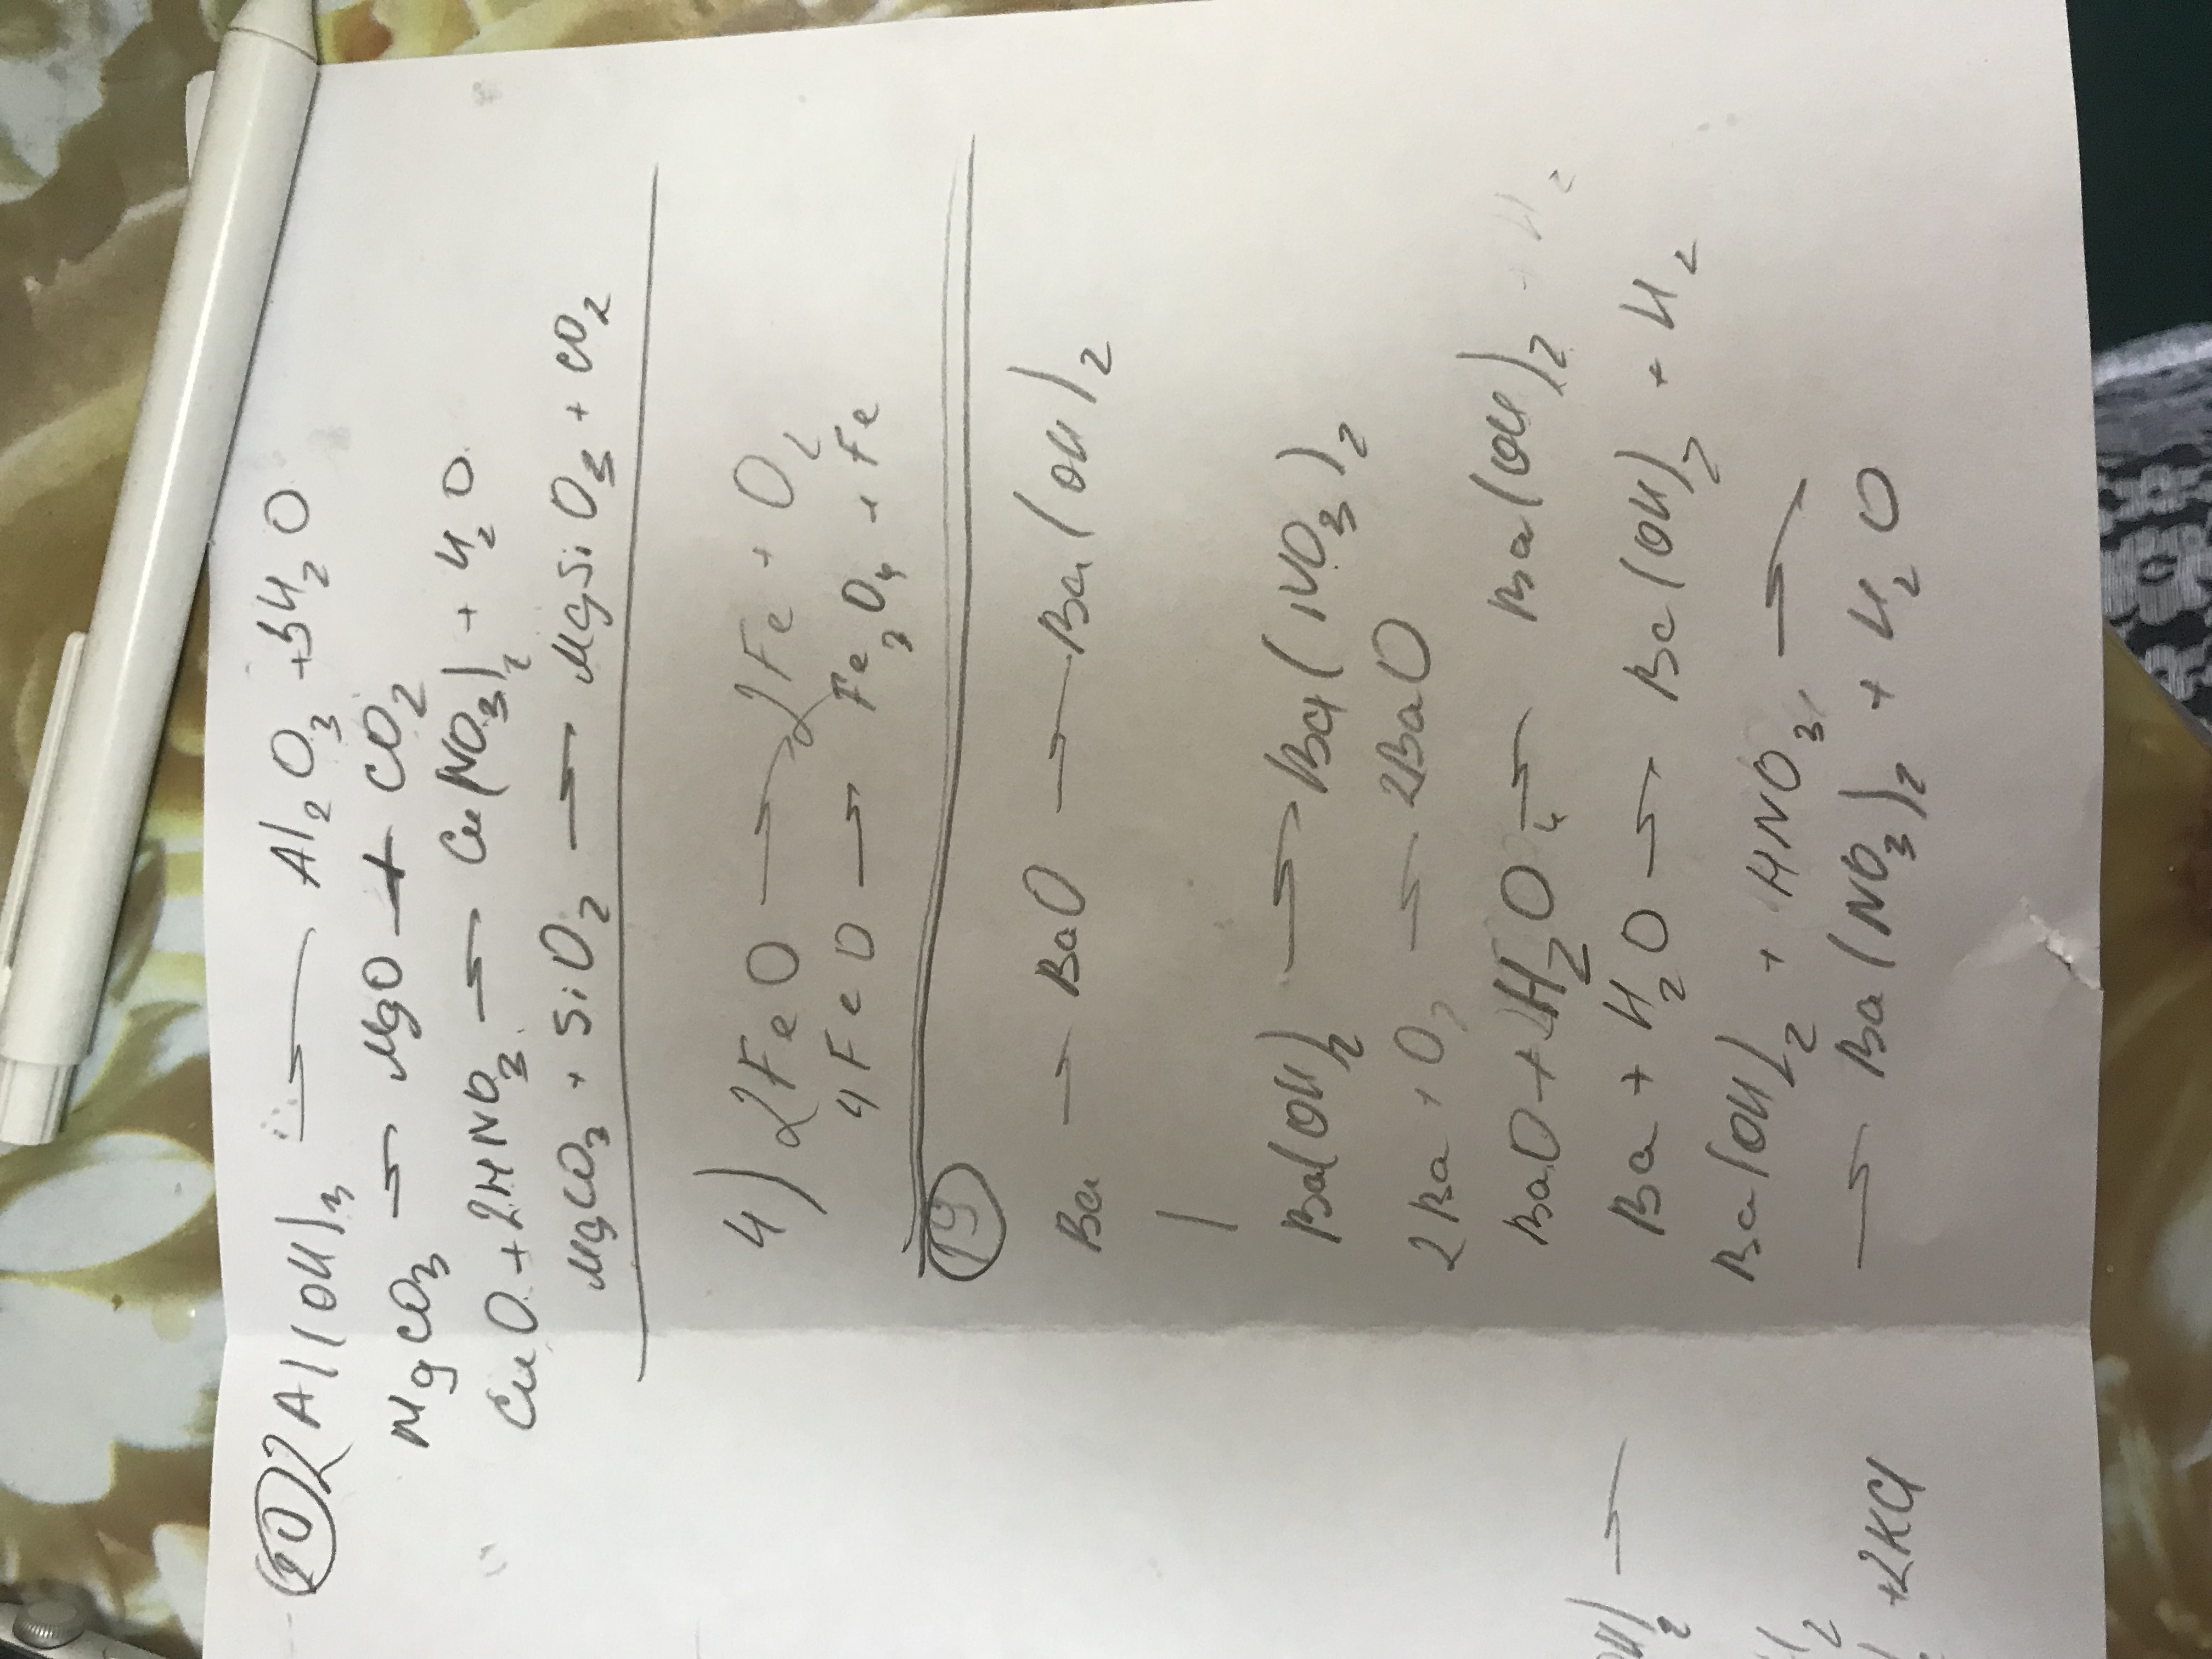 20 2Al(OH)3 → Al2O3 + 3H2O
MgCO3 → MgO + CO2
CuO + 2HNO3 → Cu(NO3)2 + H2O
MgCO3 + SiO2 → MgSiO3 + CO2
4) 2FeO → 2Fe + O2
4FeO → Fe3O4 + Fe
19
Ba → BaO → Ba(OH)2
|
Ba(OH)2 → Ba(NO3)2
2Ba + O2 → 2BaO
BaO + H2O → Ba(OH)2 + H2
Ba + H2O → Ba(OH)2 + H2
Ba(OH)2 + HNO3 →
→ Ba(NO3)2 + H2O
OH)2 →
+2KCl